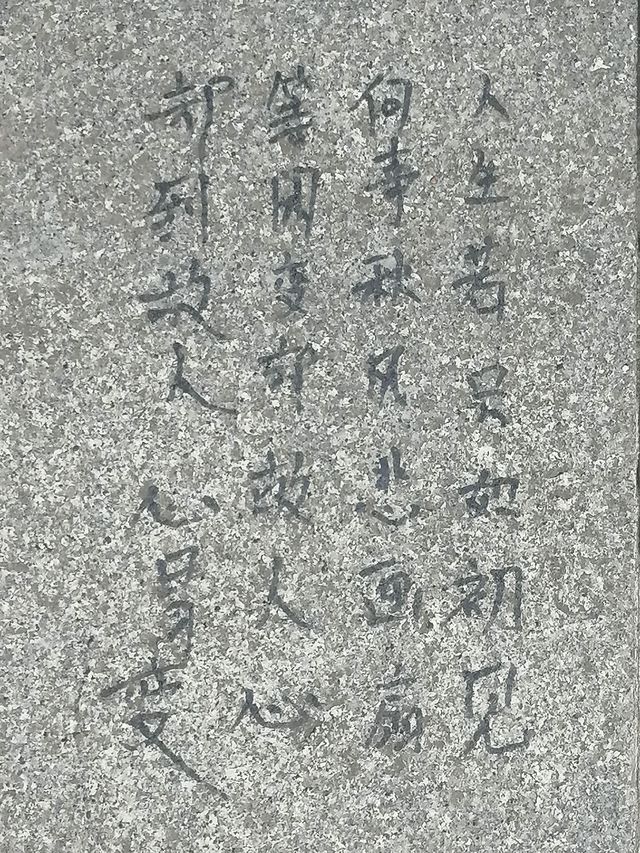 人生若只如初见
何事秋风悲画扇
等闲变却故人心
却到故人心易变